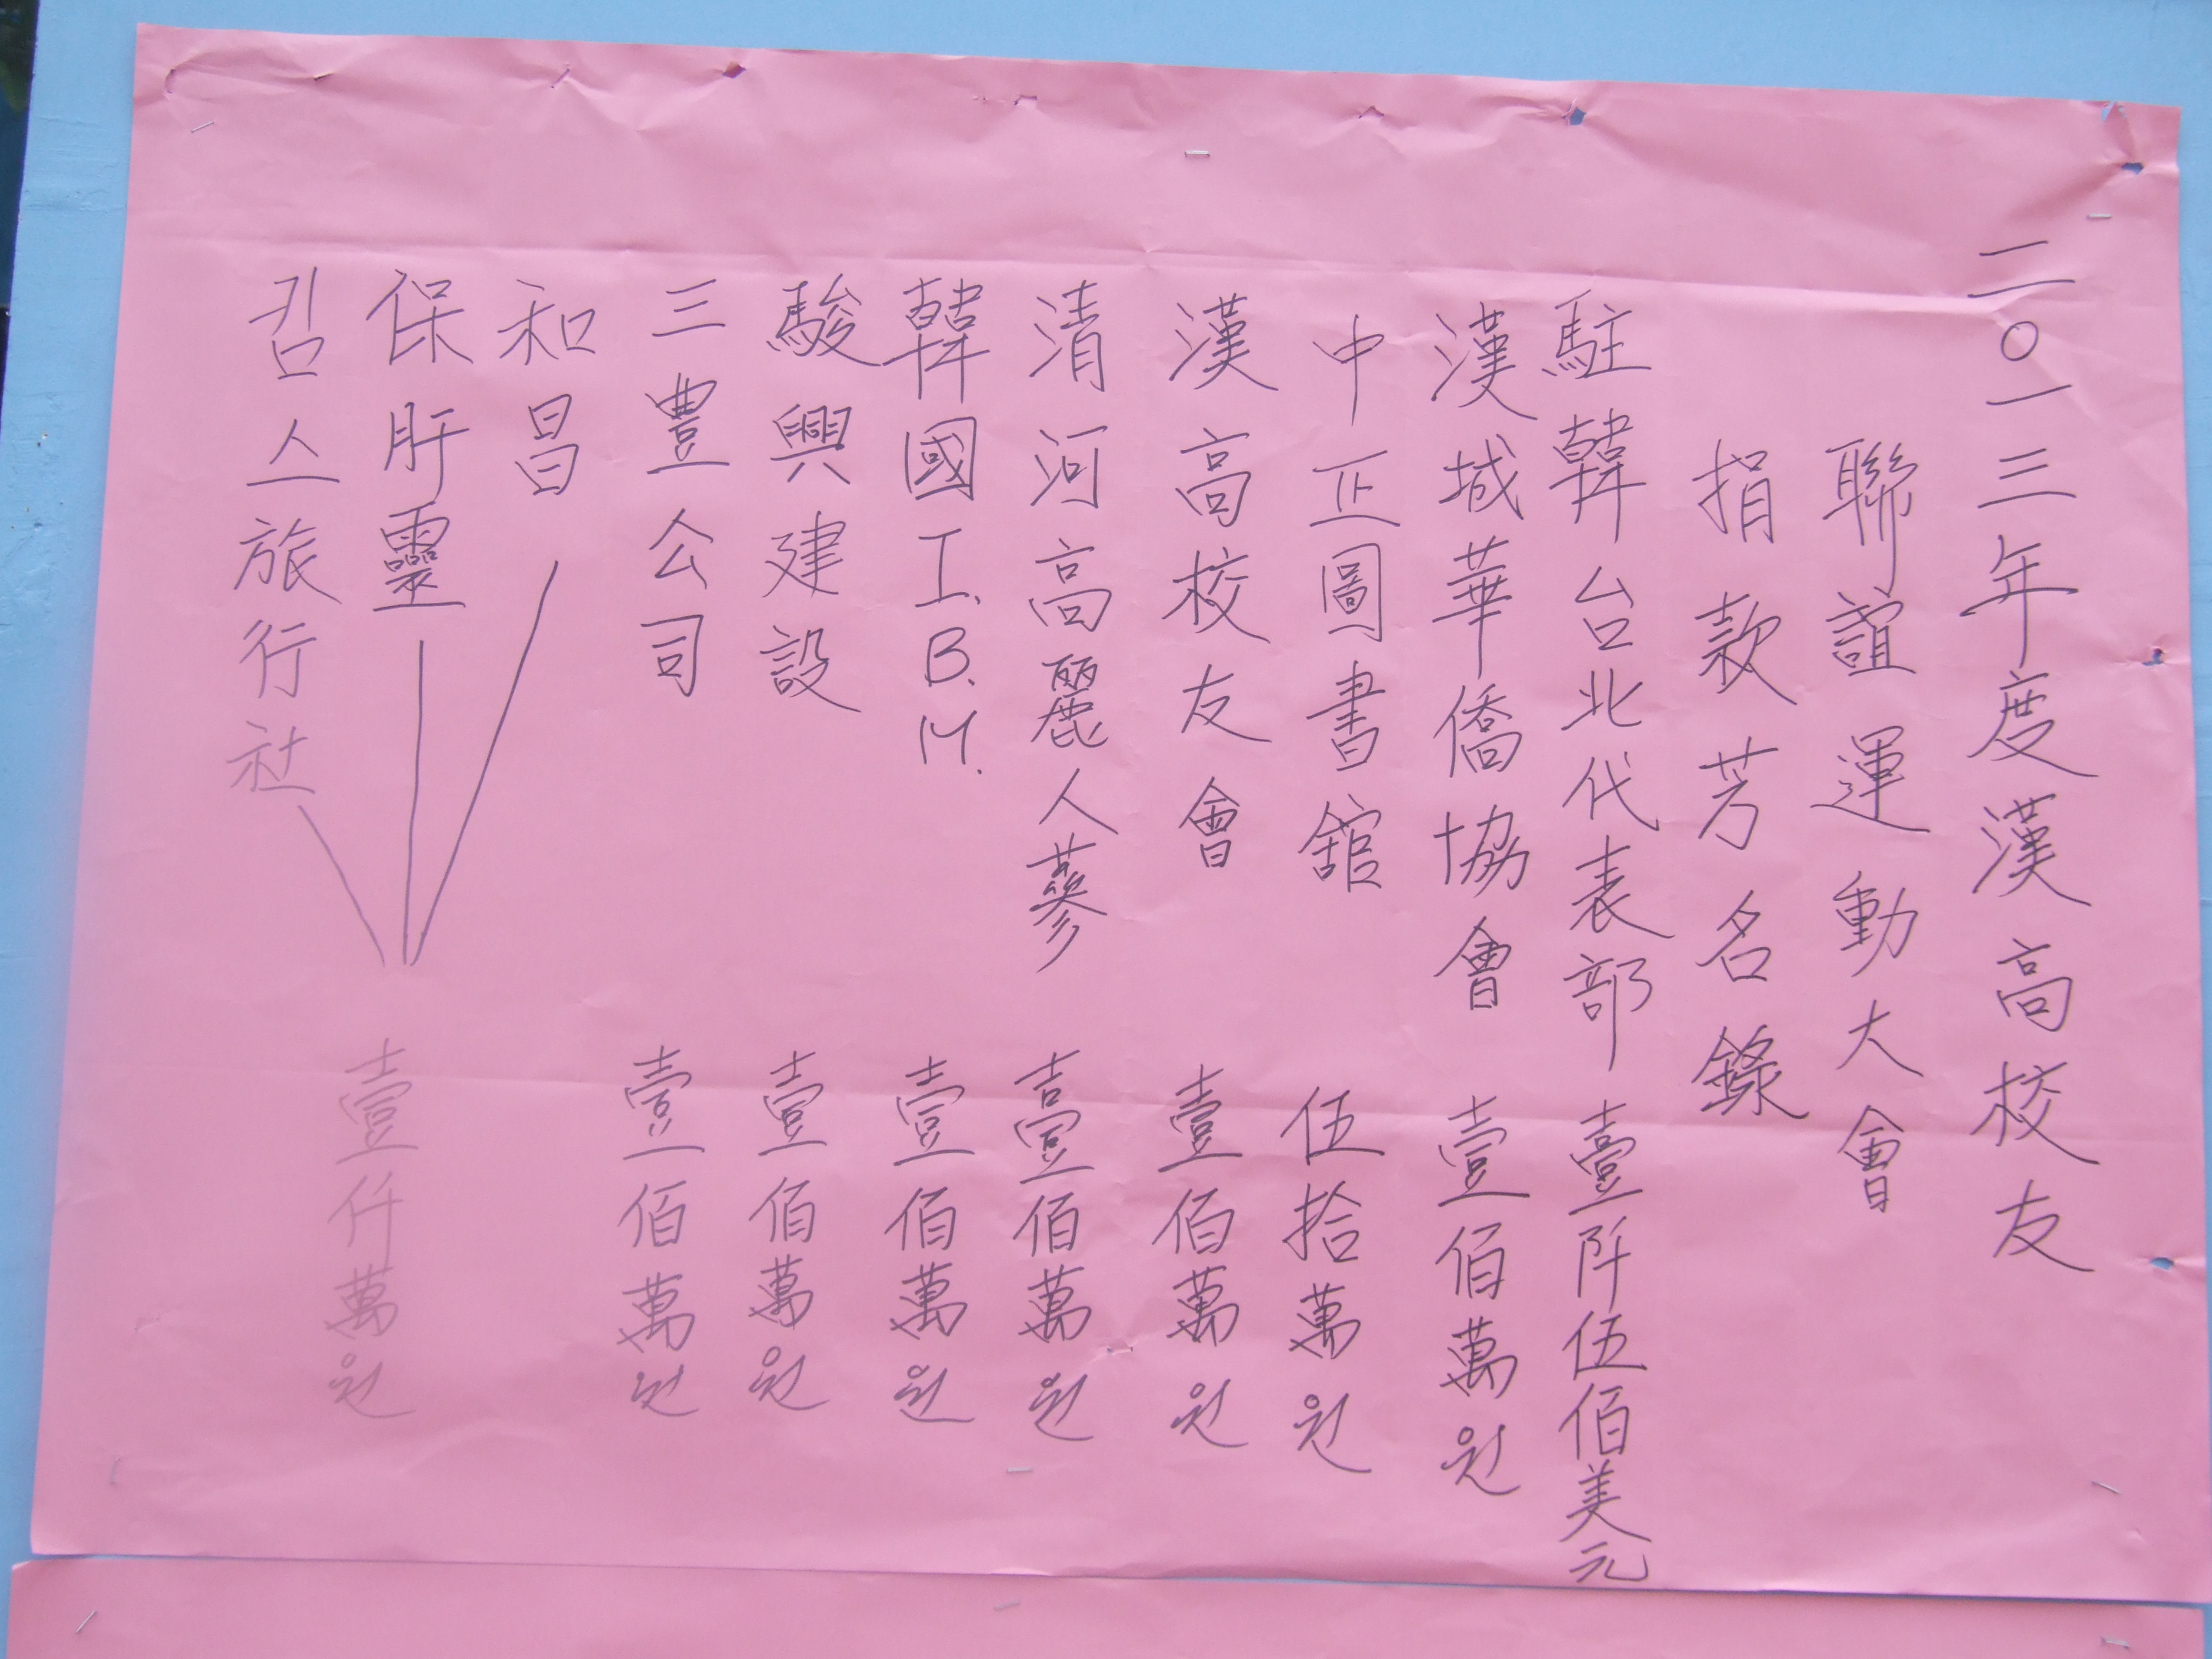 二〇一三年度漢高校友
聯誼運動大會
捐款芳名錄
駐韓台北代表部 壹阡伍佰美元
漢城華僑協會 壹佰萬원
中正圖書館 伍拾萬원
漢高校友會 壹佰萬원
清河高麗人蔘 壹佰萬원
韓國I.B.M. 壹佰萬원
駿興建設 壹佰萬원
三豊公司 壹佰萬원
和昌
保肝靈
킴스旅行社
壹仟萬원